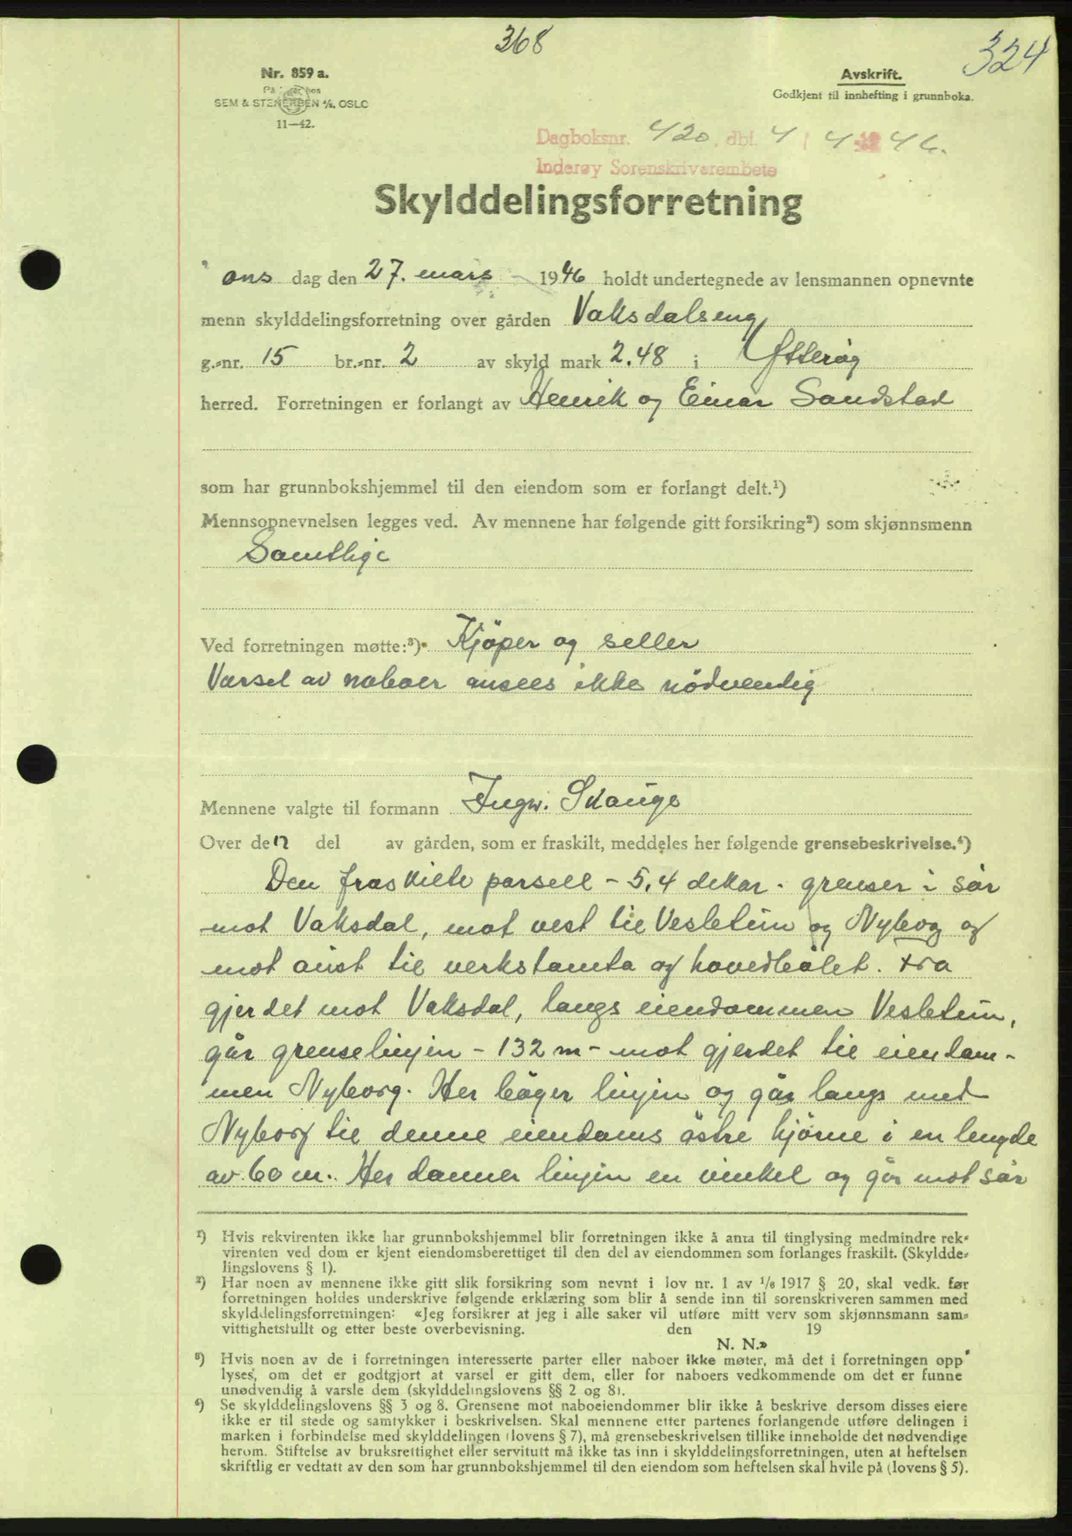 368
324
Nr. 859 a.
På lager hos
SEM & STENERSEN A/S, OSLO
11-42.
Avskrift.
Godkjent til innhefting i grunnboka.
Dagboksnr. 420, dbf. 4 / 4 1946.
Inderøy Sorenskriverembete
Skylddelingsforretning
ons dag den 27. mars 1946 holdt undertegnede av lensmannen opnevnte
menn skylddelingsforretning over gården Vaksdalseng
g.-nr. 15 br.-nr. 2 av skyld mark 2.48 i Ytterøy
herred. Forretningen er forlangt av Henrik og Einar Sandstad
som har grunnbokshjemmel til den eiendom som er forlangt delt.¹)
Mennsopnevnelsen legges ved. Av mennene har følgende gitt forsikring²) som skjønnsmenn
Samtlige
Ved forretningen møtte:³) Kjöper og seller
Varsel av naboer ansees ikke nödvendig
Mennene valgte til formann Ingv. Skauge
Over den del av gården, som er fraskilt, meddeles her følgende grensebeskrivelse.⁴)
Den fraskilte parsell - 5,4 dekar - grenser i sör
mot Vaksdal, mot vest til Vesletun og Nyborg og
mot aust til verkstomta og hovedbölet. Fra
gjerdet mot Vaksdal, langs eiendommen Vesletun,
går grenselinjen - 132 m - mot gjerdet til eiendom-
men Nyborg. Her böger linjen og går langs med
Nyborg til denne eiendoms östre hjörne i en lengde
av 60 m. Her danner linjen en vinkel og går mot sör
¹) Hvis rekvirenten ikke har grunnbokshjemmel blir forretningen ikke å anta til tinglysing medmindre rek-
virenten ved dom er kjent eiendomsberettiget til den del av eiendommen som forlanges fraskilt. (Skyldde-
lingslovens § 1).
²) Har noen av mennene ikke gitt slik forsikring som nevnt i lov nr. 1 av 1/6 1917 § 20, skal vedk. før
forretningen holdes underskrive følgende erklæring som blir å sende inn til sorenskriveren sammen med
skylddelingsforretningen: «Jeg forsikrer at jeg i alle saker vil utføre mitt verv som skjønnsmann sam-
vittighetsfullt og etter beste overbevisning. den 19
N. N.»
³) Hvis noen av de i forretningen interesserte parter eller naboer ikke møter, må det i forretningen opp
lyses, om det er godtgjort at varsel er gitt dem, eller for naboers vedkommende om det er funne
unødvendig å varsle dem (skylddelingslovens §§ 2 og 8).
⁴) Se skylddelingslovens §§ 3 og 8. Grensene mot naboeiendommer blir ikke å beskrive dersom disses eiere
ikke er til stede og samtykker i beskrivelsen. Skal mennene etter partenes forlangende utføre delingen i
marken i forbindelse med skylddelingen (lovens § 7), må grensebeskrivelsen tillike inneholde det nødvendige
herom. Stiftelse av bruksrettighet eller servitutt må ikke tas inn i skylddelingsforretningen, uten at heftelsen
skriftlig er vedtatt av den som har grunnbokshjemmel til den eiendom som heftelsen skal hvile på (lovens § 5).